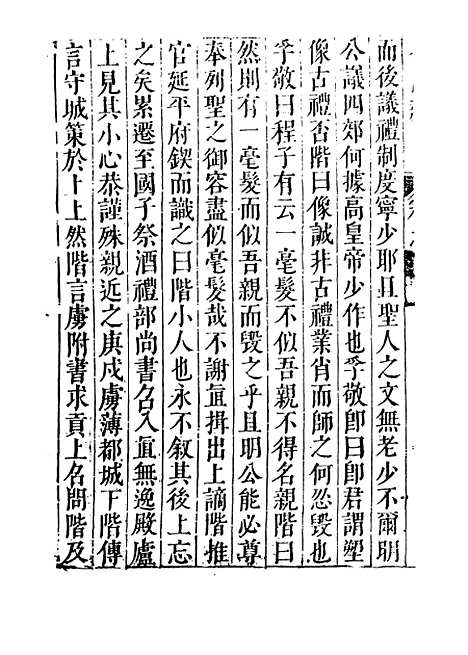 而後議禮制度寧少耶且聖人之文無老少不爾明
公議四郊何據高皇帝少作也孚敬卽曰卽君謂塑
像古禮否階曰像誠非古禮業肖而師之何忍毀也
孚敬曰程子有云一毫髮不似吾親不得名親階曰
然則有一毫髮而似吾親而毀之乎且明公能必尊
奉列聖之御容盡似毫髮哉不謝直揖出上謫階推
官延平府鍥而識之曰階小人也永不叙其後上忘
之矣累遷至國子祭酒禮部尚書召入直無逸殿廬
上見其小心恭謹殊親近之庚戌虜薄都城下階傳
言守城策於上上然階言虜附書求貢上召問階及